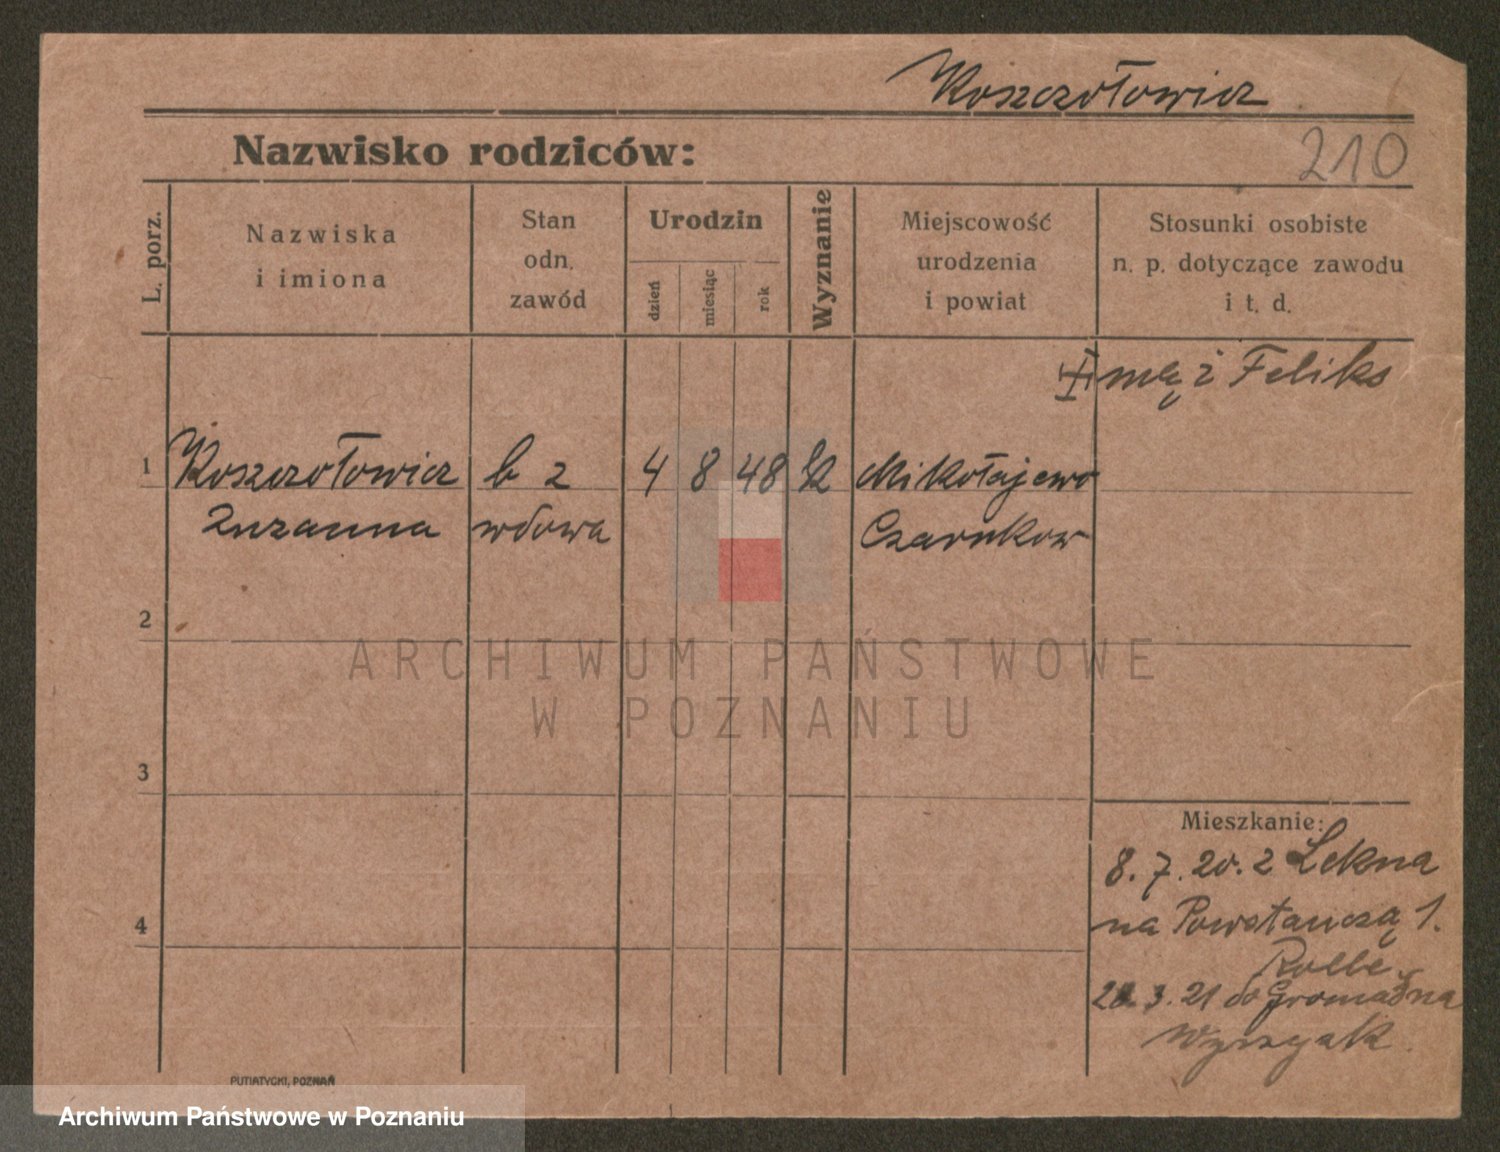 Koszczołowicz
Nazwisko rodziców:
210
L. porz.
Nazwiska
i imiona
Stan
odn.
zawód
Urodzin
dzień
miesiąc
rok
Wyznanie
Miejscowość
urodzenia
i powiat
Stosunki osobiste
n. p. dotyczące zawodu
i t. d.
I mąż Feliks
1 Koszczołowicz b z 4 8 48 Mikołajewo
Zuzanna wdowa Czarnkow
2
ARCHIWUM PAŃSTWOWE
W POZNANIU
3
Mieszkanie:
8. 7. 20. z Lekna
na Powstańczą 1.
4
3. 21 do Gromadna
Wyrzysk
PUTIATYCKI, POZNAŃ
Archiwum Państwowe w Poznaniu